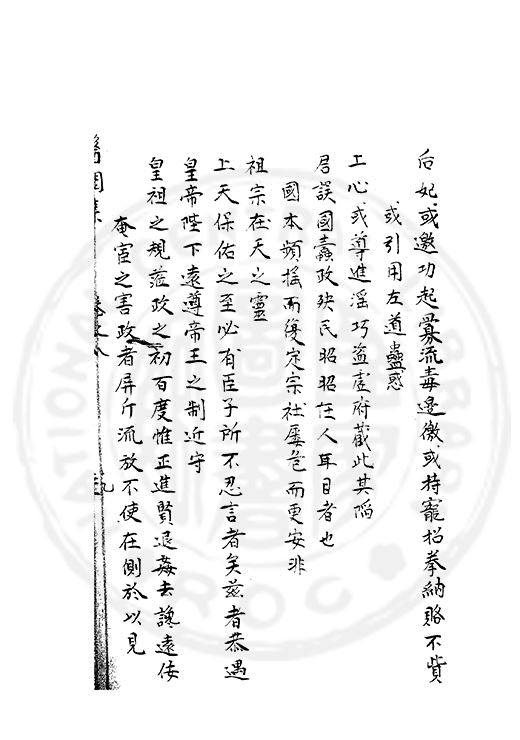 后妃或邀功起釁流毒邊徼或持寵招拳納賂不貲
或引用左道蠱惑
上心或導進滛巧盗虗府藏此其陷
君誤國蠧政殃民昭昭在人耳目者也
國本頻揺而復定宗社屢危而更安非
祖宗在天之靈
上天保佑之至必有臣子所不忍言者矣兹者恭遇
皇帝陛下遠尊帝王之制近守
皇祖之規蒞政之初百度惟正進賢退姦去讒遠佞
奄宦之害政者屏斤流放不使在側於以見